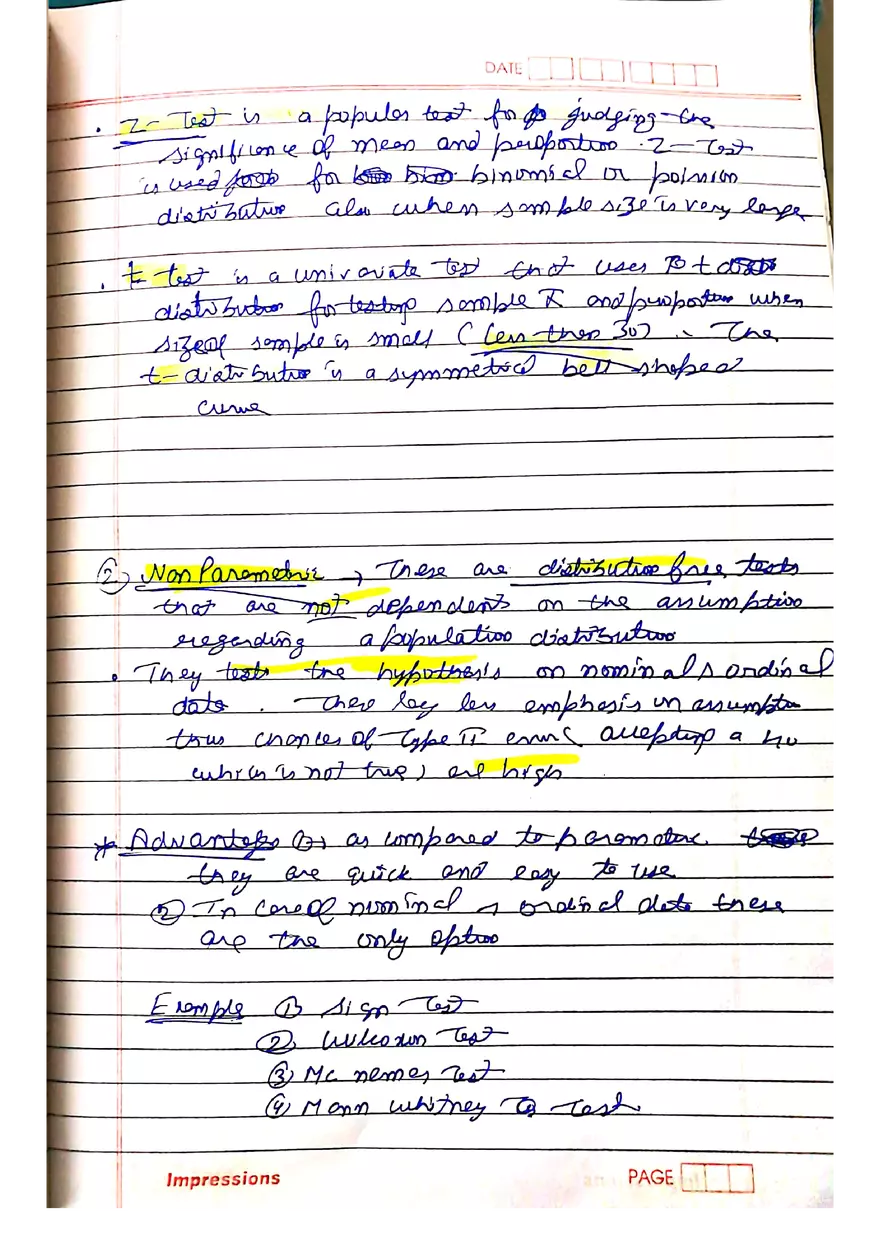 DATE
. Z- Test is a popular test for judging the
significance of mean and proportion . Z- Test
is used for binomial or poission
distribution also when sample size is very large
. t- test is a univariate test that uses t
distribution for testing sample x̄ and proportion when
size of sample is small (less than 30) . The
t- distribution is a symmetrical bell shaped
curve
② Non Parametric → These are distribution free tests
that are not dependents on the assumption
regarding a population distribution
. They tests the hypothesis on nominal & ordinal
data . There lay less emphasis on assumption
thus chances of Type II error ( accepting a Ho
which is not true ) are high
* Advantages ① as compared to parametric
they are quick and easy to use
② In case of nominal & ordinal data these
are the only option
Example ① Sign Test
② Wilcoxon Test
③ Mc nemer Test
④ Mann whitney Test
Impressions
PAGE